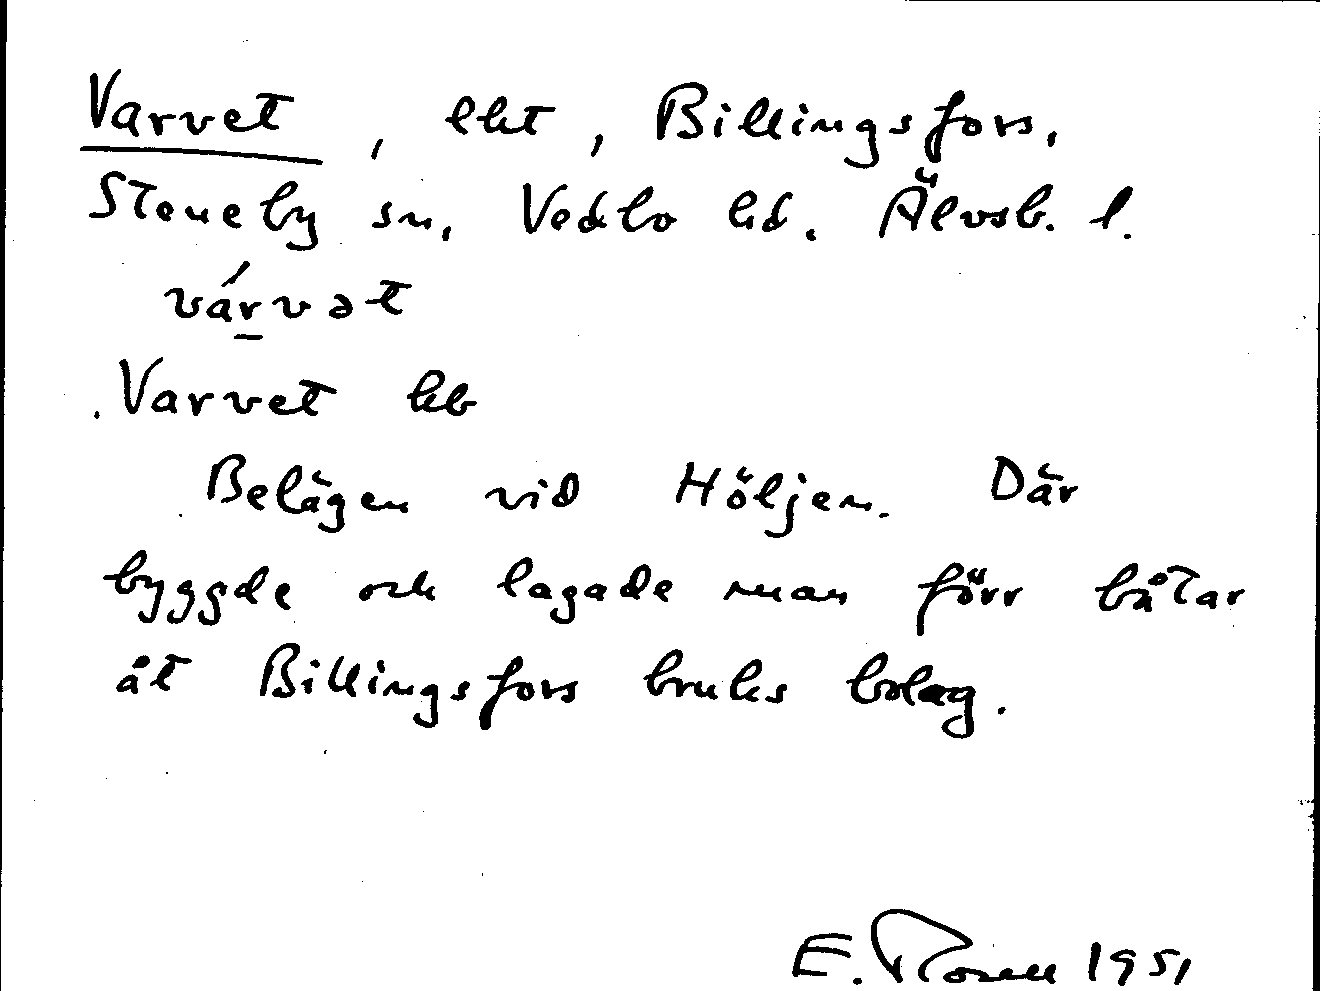 Varvet, lht, Billingsfors,
Steneby sn, Vedbo hd. Älvsb. l.
várvət
Varvet hb
Belägen vid Höljen. Där
byggde och lagade man förr båtar
åt Billingsfors bruks bolag.
E. Rosell 1951